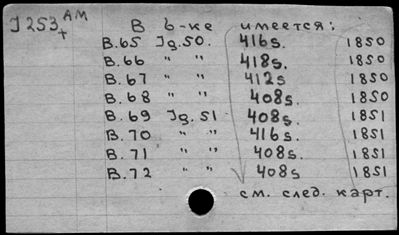 J253+ АМ В б-ке имеется:
В.65 Jg.50. 416s. 1850
В.66 " " 418s. 1850
В.67 " " 412s 1850
В.68 " " 408s. 1850
В.69 Jg.51 408s. 1851
В.70 " " 416s. 1851
В.71 " " 408s. 1851
В.72 " " 408s 1851
см. след. карт.